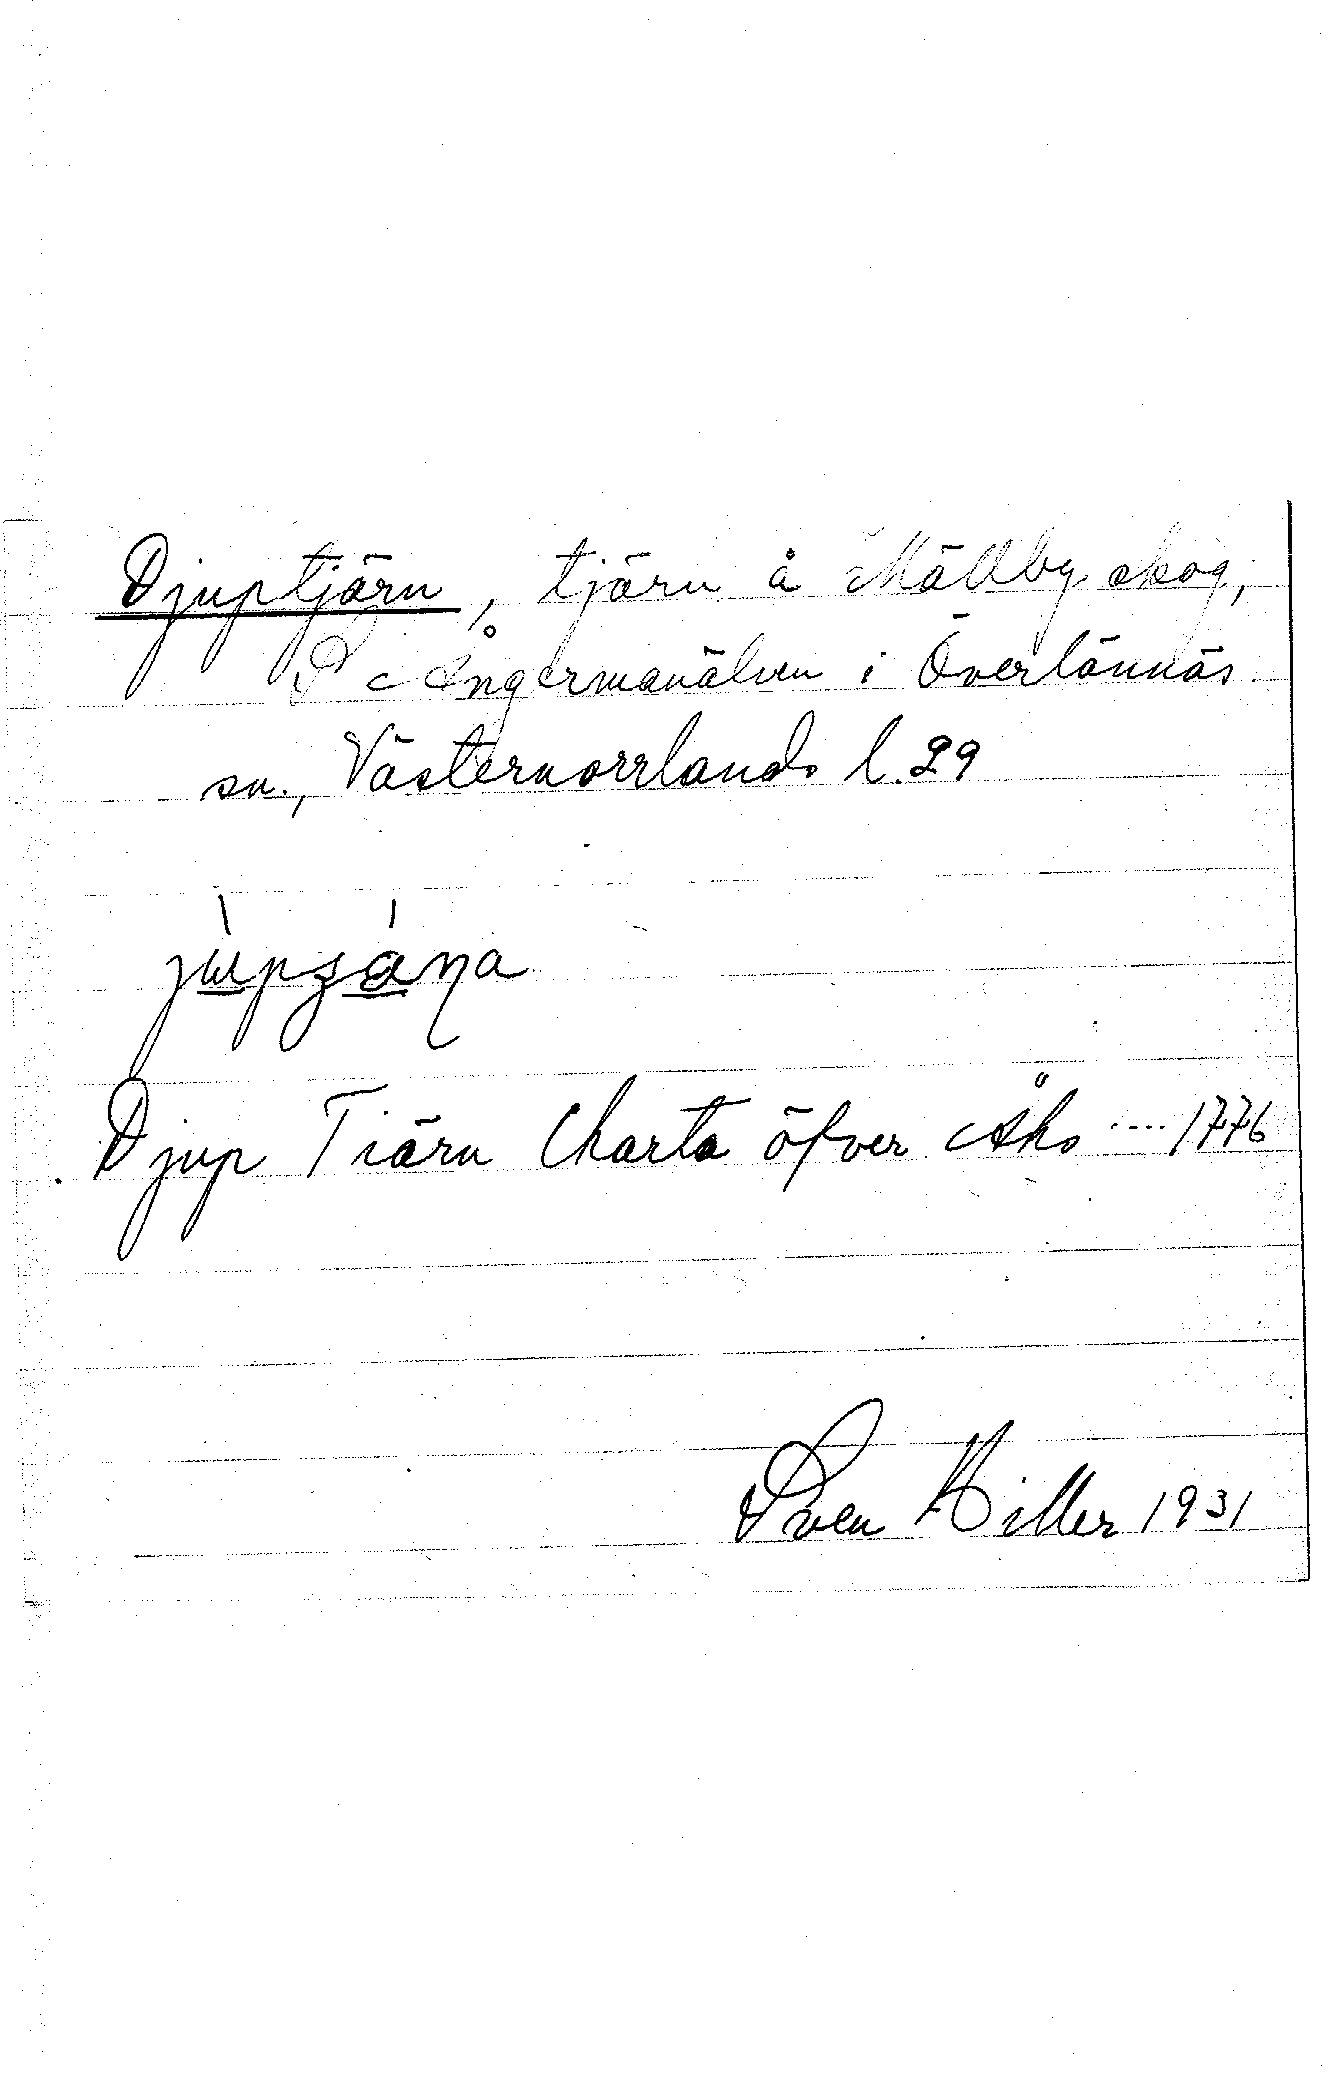 Djuptjärn, tjärn å Mällby skog,
S Ångermanälven i Överlännäs
sn., Västernorrlands l. 29
Djup Tiärn Charta öfver Åks .... 1776
Sven Hiller 1931